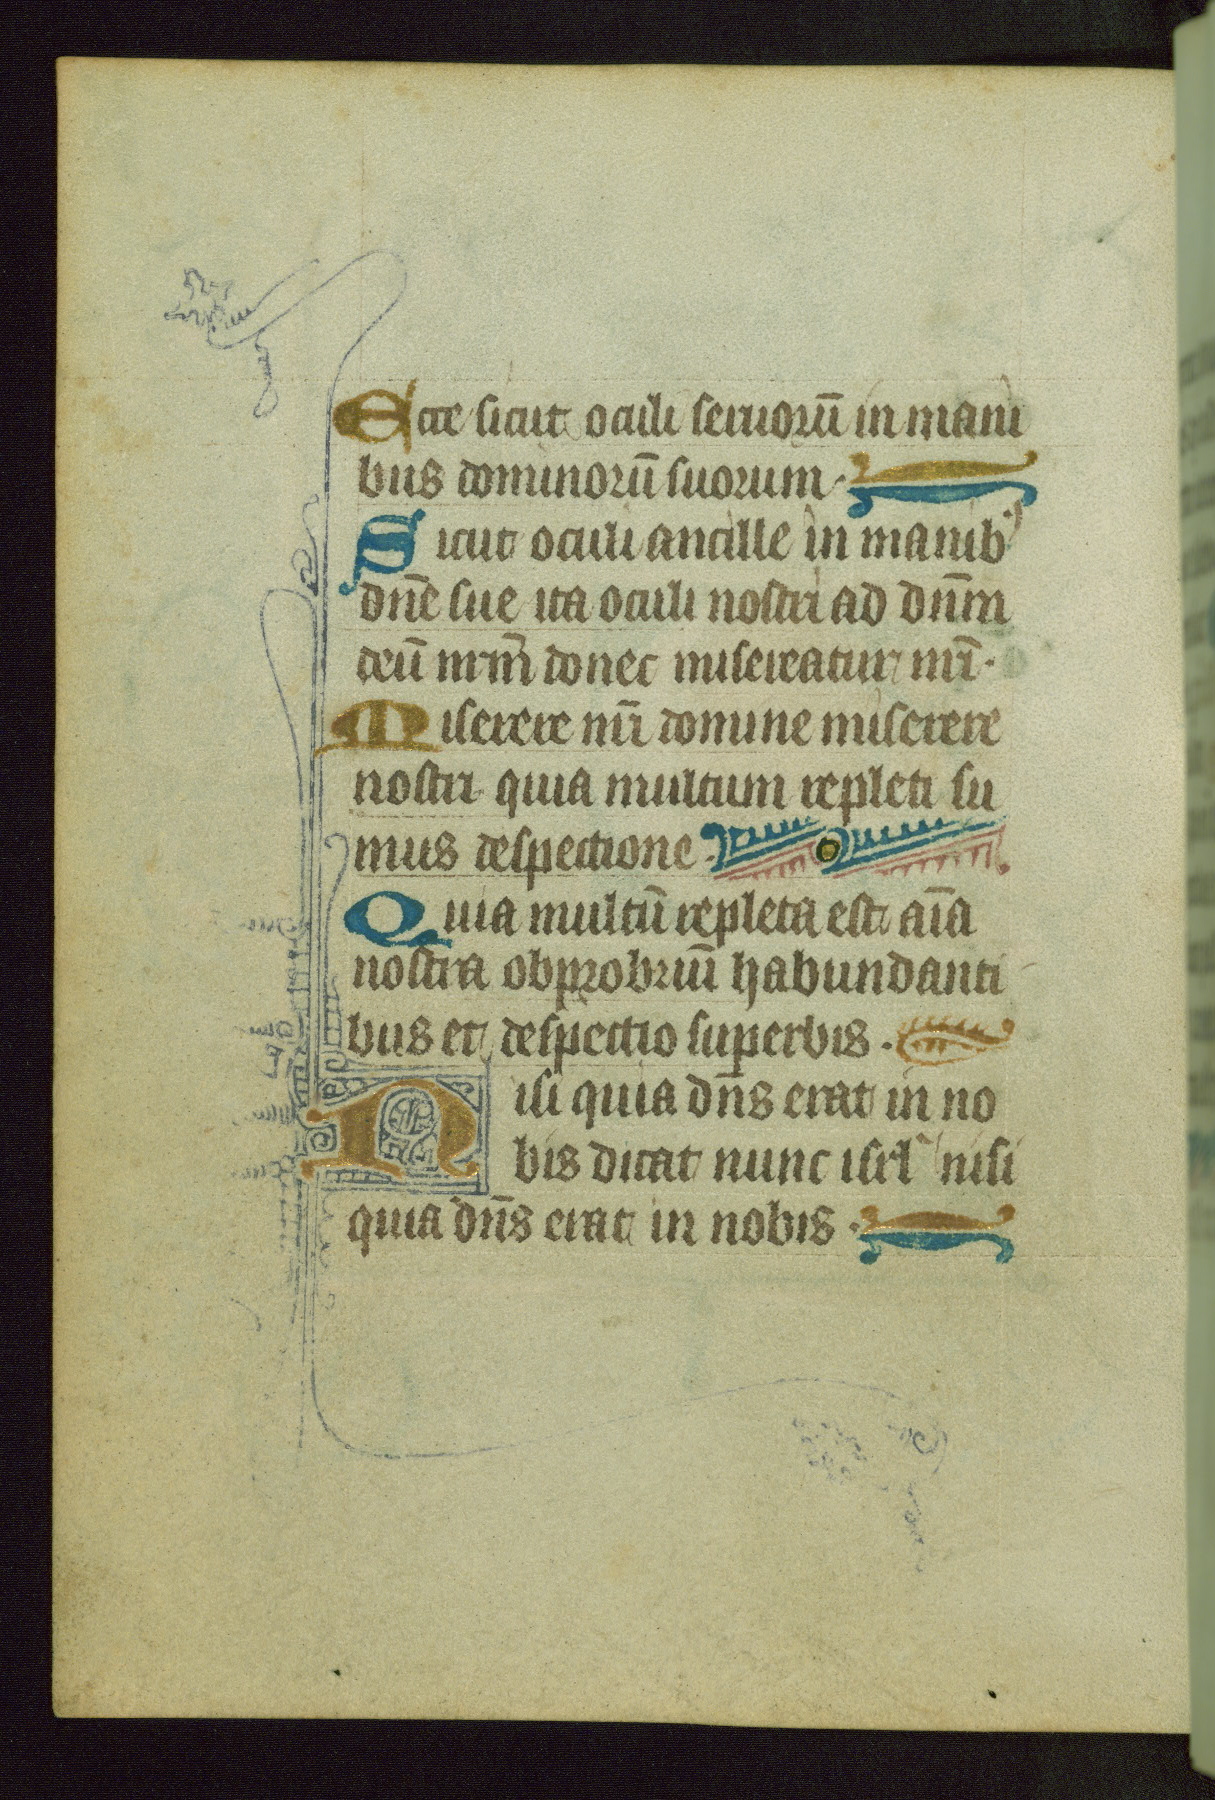 Ecce sicut oculi seruorū in manu
bus dominorū suorum.
Sicut oculi ancille in manib'
dn̄e sue ita oculi nostri ad dn̄m
deū nr̄m donec misereatur nr̄i.
Miserere nr̄i domine miserere
nostri quia multum repleti su
mus despectione.
Quia multū repleta est aīa
nostra obprobriū habundanti
bus et despectio superbis.
Nisi quia dn̄s erat in no
bis dicat nunc isrl̄ nisi
quia dn̄s erat in nobis.